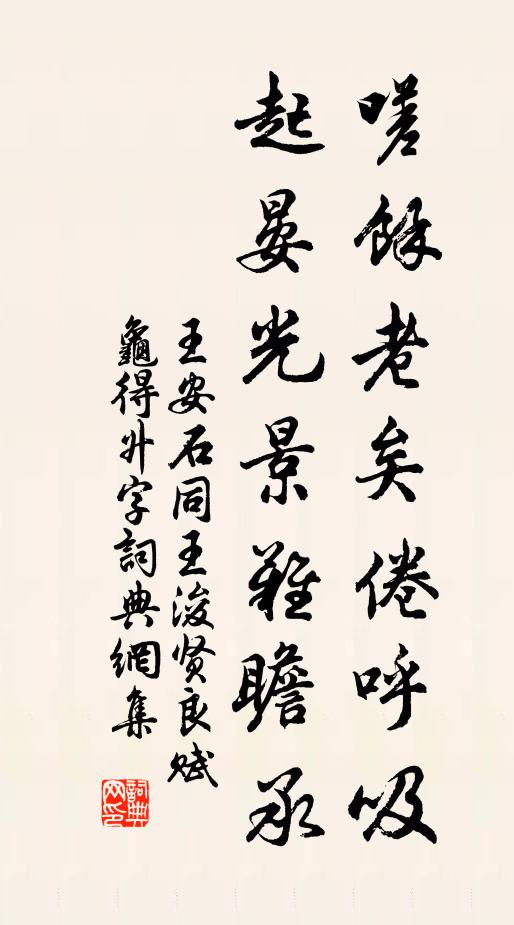 嗟餘老矣倦呼吸
起晏光景難瞻承
王安石同王浚贤良賦
龜得升字詞典網集
詞典网印